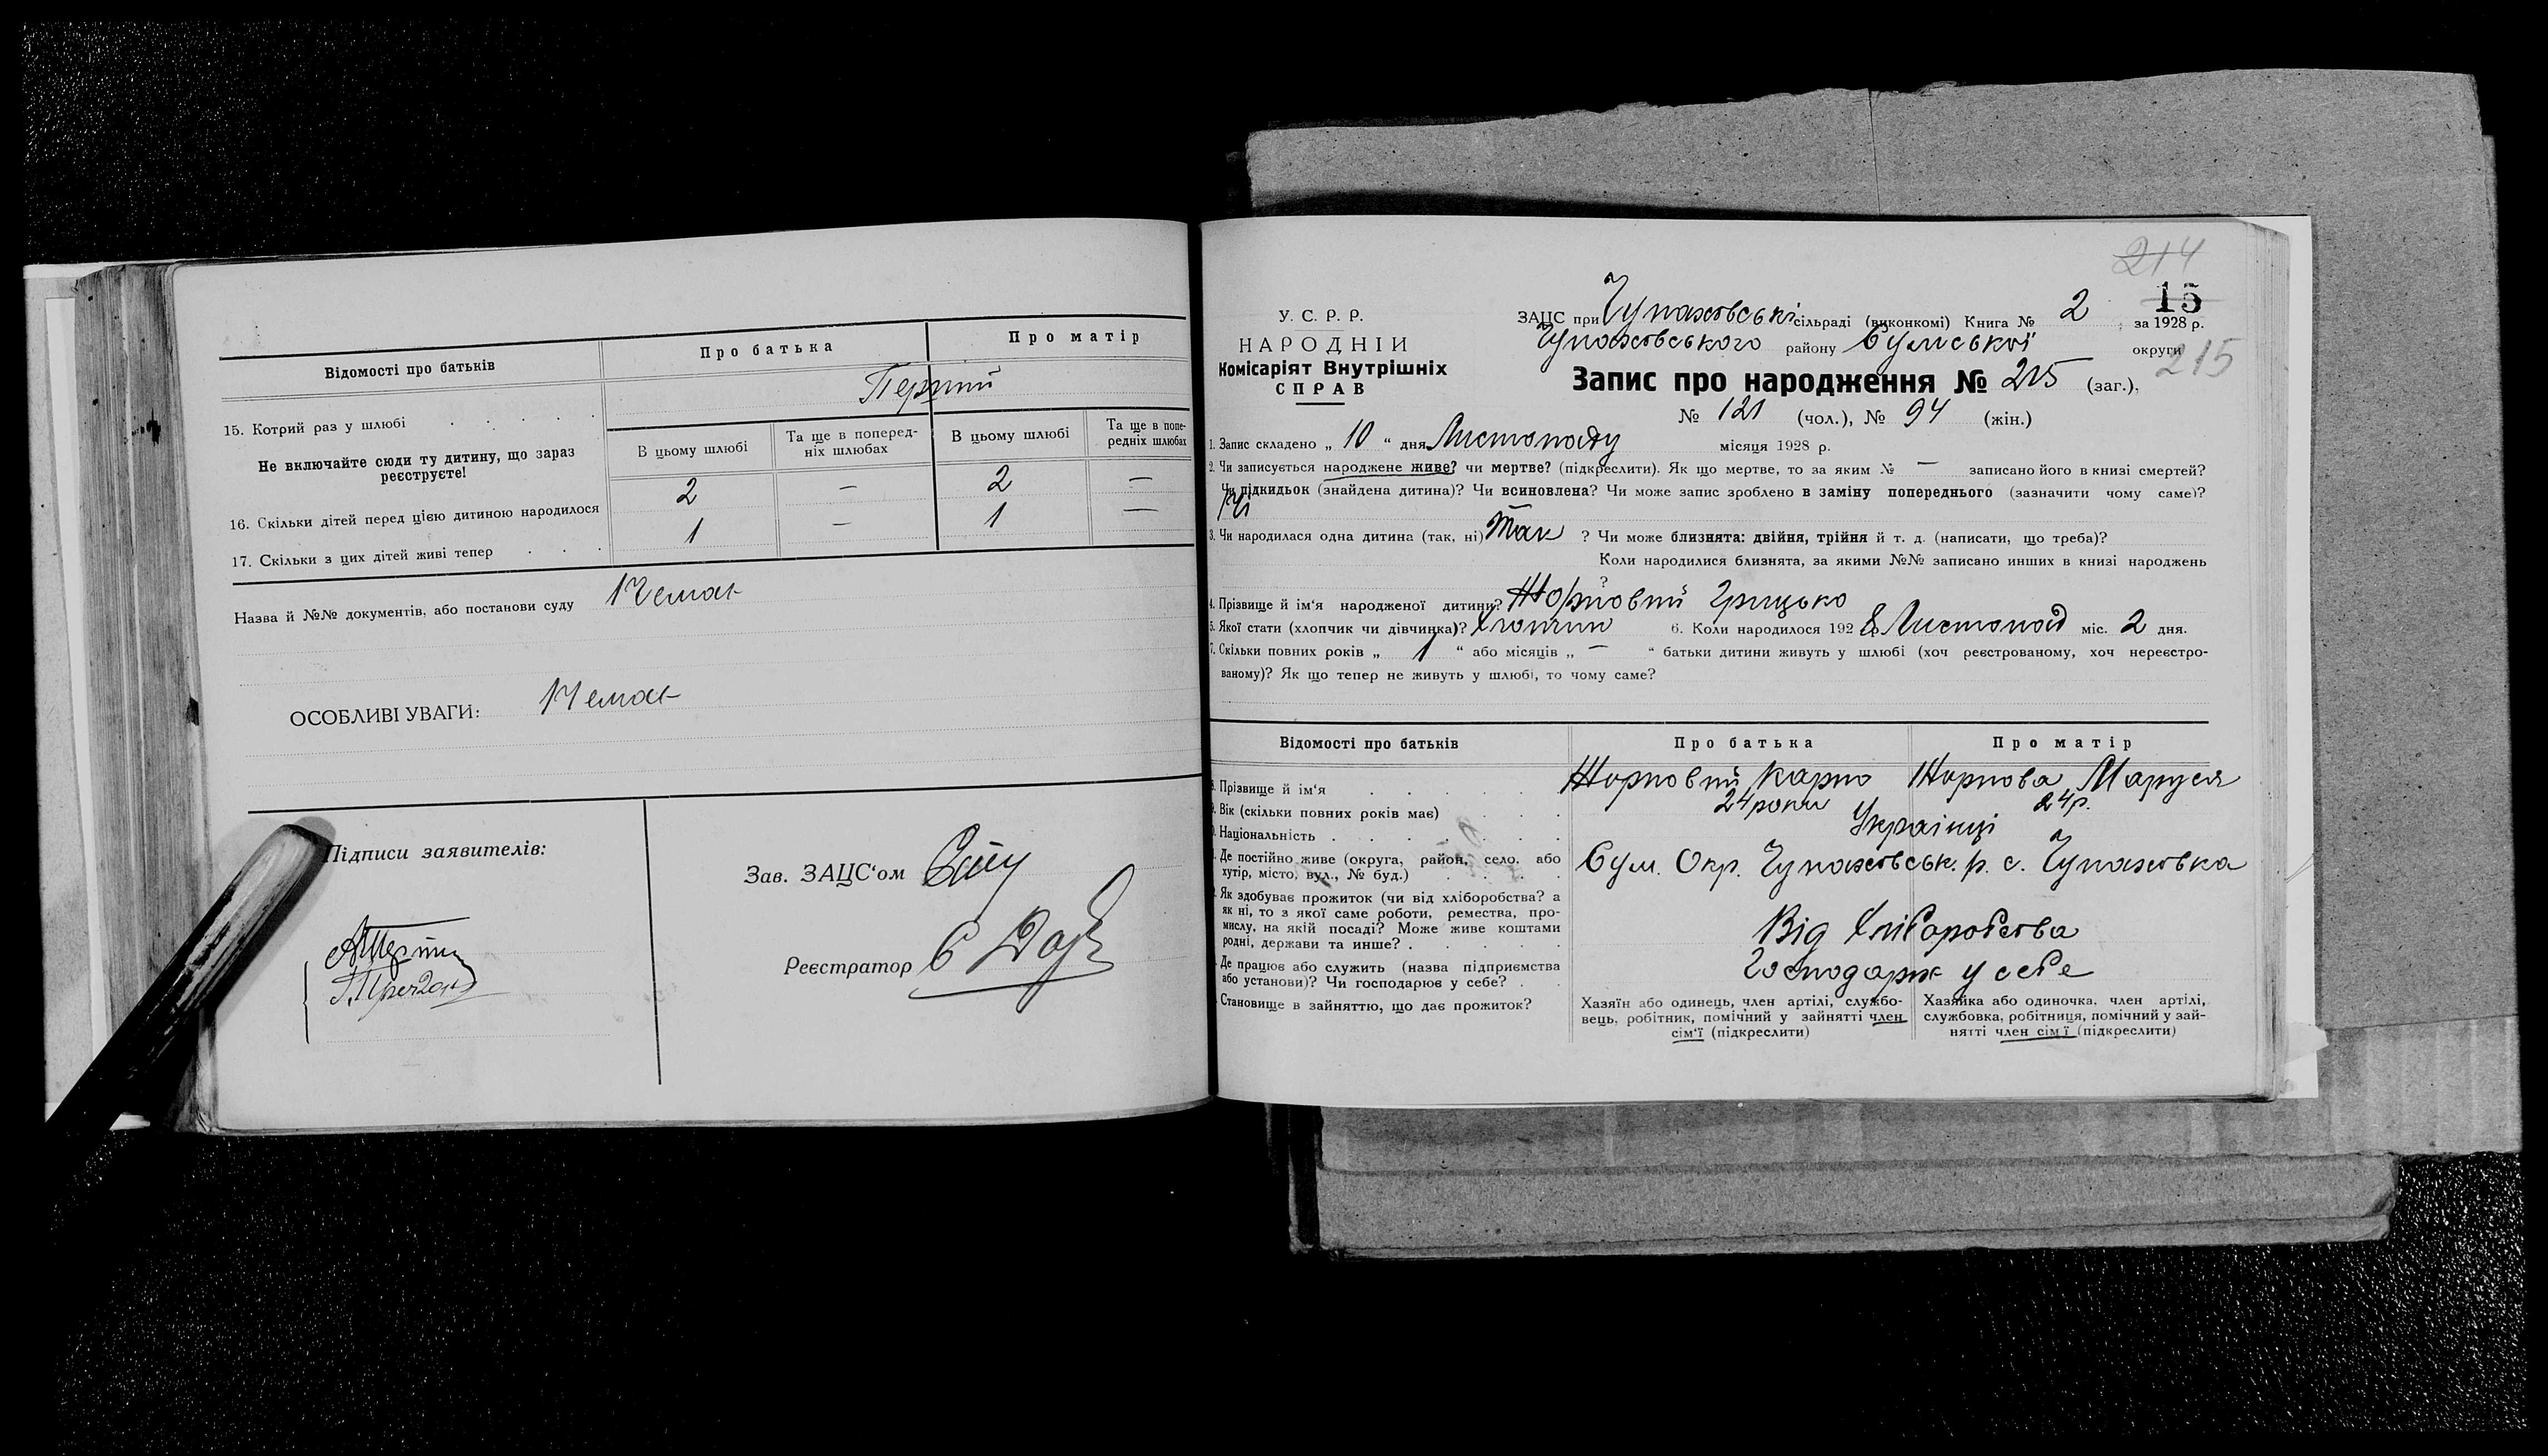 Відомості про батьків
Про батька
Про матір
15. Котрий раз у шлюбі
Перший
Не включайте сюди ту дитину, що зараз реєструєте!
В цьому шлюбі
Та ще в попередніх шлюбах
В цьому шлюбі
Та ще в попередніх шлюбах
16. Скільки дітей перед цією дитиною народилося 2 — 2 —
17. Скільки з цих дітей живі тепер 1 — 1 —
Назва й №№ документів, або постанови суду Немає
ОСОБЛИВІ УВАГИ: Немає
Підписи заявителів:
Зав. ЗАЦС‘ом
Реєстратор
214
15
У. С. Р. Р.
НАРОДНІЙ
Комісаріят Внутрішніх
СПРАВ
ЗАЦС при Чупаховські сільраді (виконкомі) Книга № 2 за 1928 р.
Чупаховського району Сумської округи
215
Запис про народження № 215 (заг.),
№ 121 (чол.), № 94 (жін.)
1. Запис складено „ 10 “ дня Листопаду місяця 1928 р.
2. Чи записується народжене живе? чи мертве? (підкреслити). Як що мертве, то за яким № — записано його в книзі смертей?
Чи підкидьок (знайдена дитина)? Чи всиновлена? Чи може запис зроблено в заміну попереднього (зазначити чому саме)?
Ні
3. Чи народилася одна дитина (так, ні) Так ? Чи може близнята: двійня, трійня й т. д. (написати, що треба)?
Коли народилися близнята, за якими №№ записано инших в книзі народжень
?
4. Прізвище й ім‘я народженої дитини? Жорновий Грицько
5. Якої стати (хлопчик чи дівчинка)? Хлопчик 6. Коли народилося 192 8 р. Листопад міс. 2 дня.
7. Скільки повних років „ 1 “ або місяців „ — “ батьки дитини живуть у шлюбі (хоч реєстрованому, хоч нереєстро-
ваному)? Як що тепер не живуть у шлюбі, то чому саме?
Відомості про батьків
Про батька
Про матір
Прізвище й ім‘я Жорновий Карпо Жорнова Маруся
Вік (скільки повних років має) 24 роки 24 р.
Національність Українці
Де постійно живе (округа, район, село. або
хутір, місто, вул., № буд.) Сум. Окр. Чупаховськ. р. с. Чупаховка
Як здобуває прожиток (чи від хліборобства? а
як ні, то з якої саме роботи, ремества, про-
мислу, на якій посаді? Може живе коштами
родні, держави та инше? Від хліборобства
Де працює або служить (назва підприємства
або установи)? Чи господарює у себе? Господарж у себе
Становище в зайняттю, що дає прожиток?
Хазяїн або одинець, член артілі, службо-
вець, робітник, помічний у зайнятті член
сім‘ї (підкреслити)
Хазяйка або одиночка, член артілі,
службовка, робітниця, помічний у зай-
нятті член сім‘ї (підкреслити)